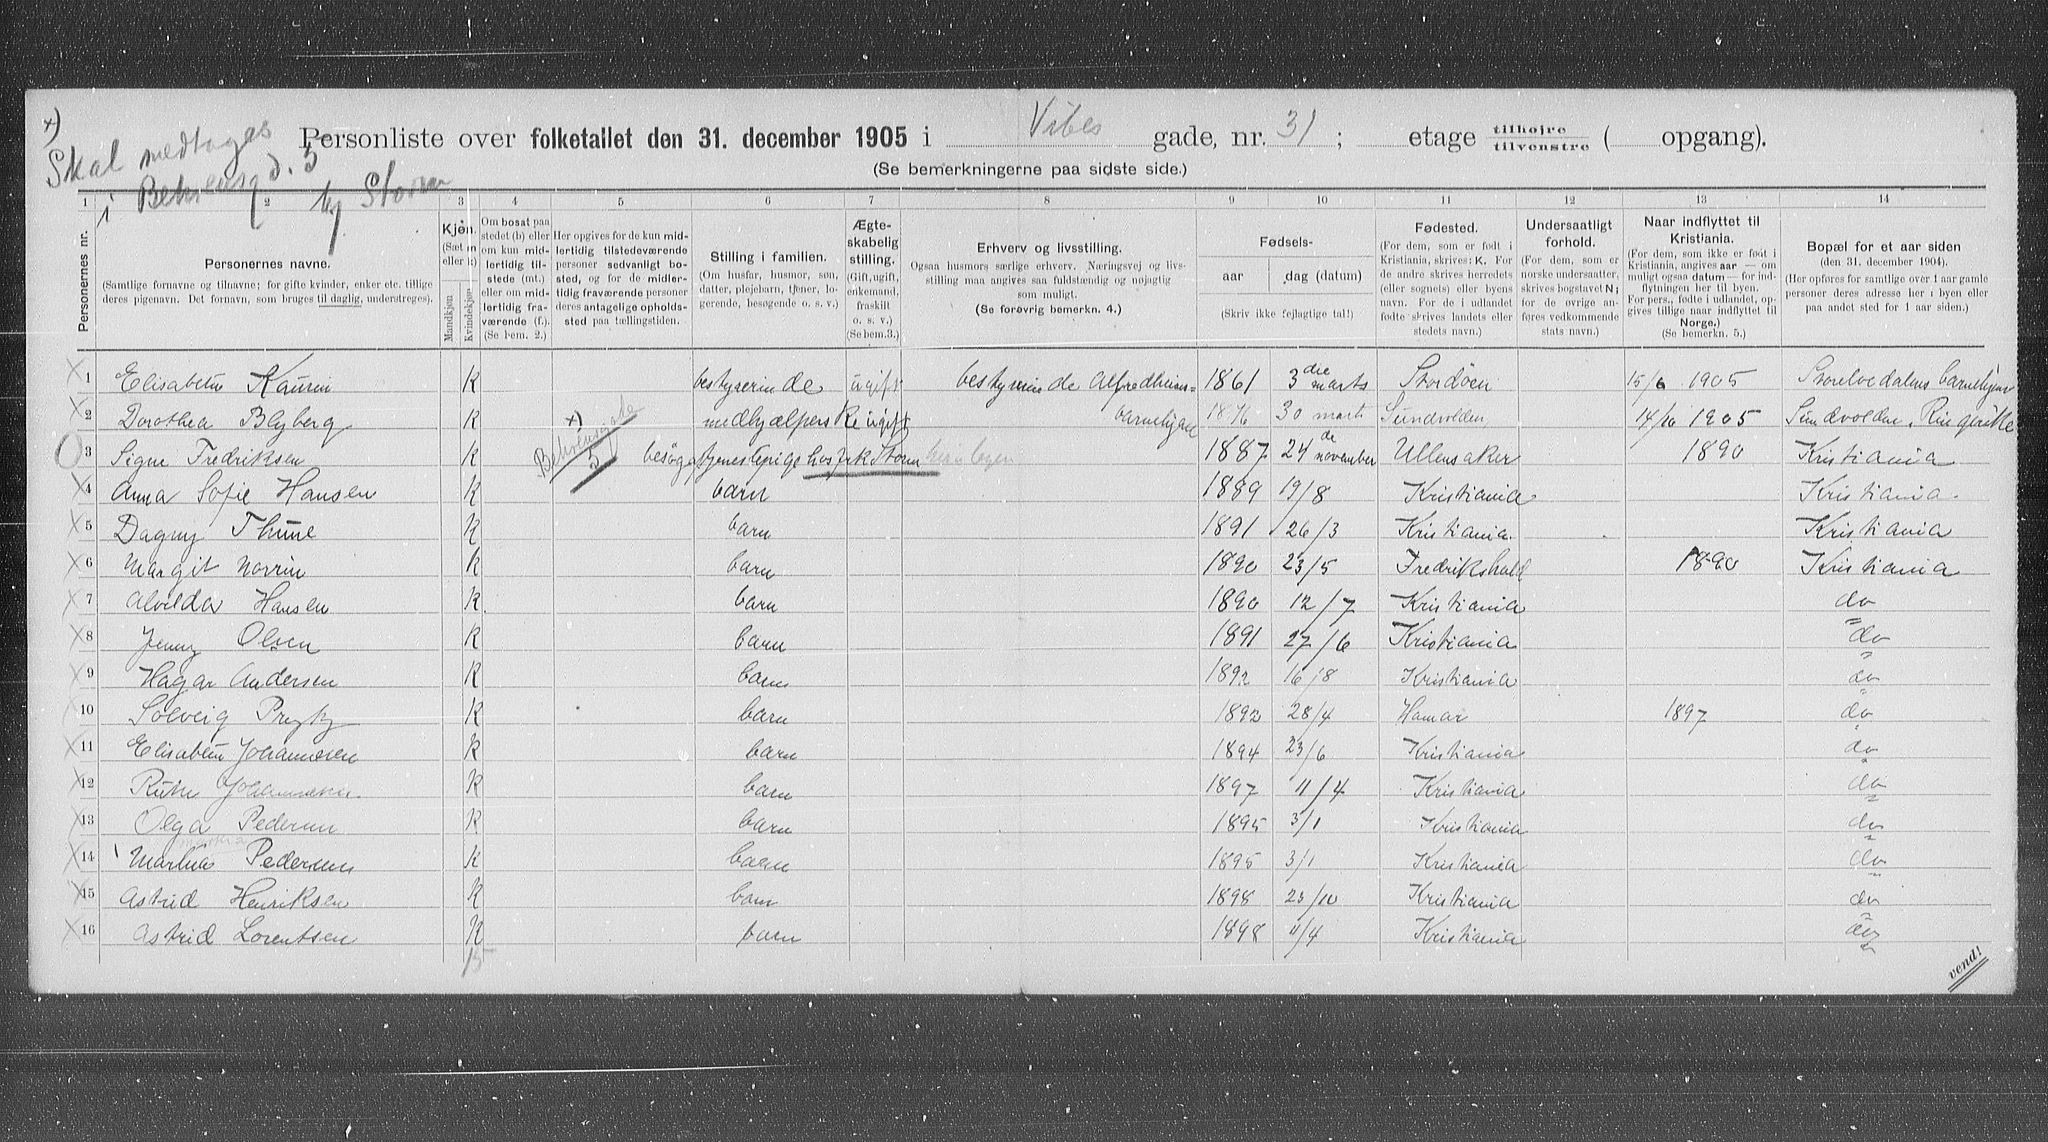 x)
Skal medtages
i Behrensgd. 5
Personliste over folketallet den 31. december 1905 i Vibes gade, nr. 31; etage tilhøjre tilvenstre ( opgang).
(Se bemerkningerne paa sidste side.)
1 2 3 4 5 6 7 8 9 10 11 12 13 14
Personernes nr.
Personernes navne.
(Samtlige fornavne og tilnavne; for gifte kvinder, enker etc. tillige
deres pigenavn. Det fornavn, som bruges til daglig, understreges).
Kjøn.
(Sæt m
eller k)
Mandkjøn
Kvindekjøn
Om bosat paa
stedet (b) eller
om kun mid-
lertidig til-
stede (mt.)
eller om mid-
lertidig fra-
værende (f.).
(Se bem. 2.)
Her opgives for de kun mid-
lertidig tilstedeværende
personer sedvanligt bo-
sted, og for de midler-
tidig fraværende personer
deres antagelige opholds-
sted paa tællingstiden.
Stilling i familien.
(Om husfar, husmor, søn,
datter, plejebarn, tjener, lo-
gerende, besøgende o. s. v.)
Ægte-
skabelig
stilling.
(Gift, ugift,
enkemand,
fraskilt
o. s. v.)
(Se bem.3.)
Erhverv og livsstilling.
Ogsaa husmors særlige erhverv. Næringsvej og livs-
stilling maa angives saa fuldstændig og nøjagtig
som muligt.
(Se forøvrig bemerkn. 4.)
Fødsels-
aar
dag (datum)
(Skriv ikke fejlagtige tal!)
Fødested.
(For dem, som er født i
Kristiania, skrives: K. For
de andre skrives herredets
(eller sognets) eller byens
navn. For de i udlandet
fødte skrives landets eller
stedets navn.)
Undersaatligt
forhold.
(For dem, som er
norske undersaatter,
skrives bogstavet N;
for de øvrige an-
føres vedkommende
stats navn.)
Naar indflyttet til
Kristiania.
(For dem, som ikke er født i
Kristiania, angives aar — om
muligt ogsaa datum — for ind-
flytningen her til byen.
For pers., fødte i udlandet, op-
gives tillige naar indflyttet til
Norge.)
(Se bemerkn. 5.)
Bopæl for et aar siden
(den 31. december 1904).
(Her opføres for samtlige over 1 aar gamle
personer deres adresse her i byen eller
paa andet sted for 1 aar siden.)
1 Elisabeth Kaurin K bestyrerinde ugift bestyrerinde Alfredheims- 1861 3die marts Stordøen 15/6 1905 barnehjem
2 Dorothea Blyberg K x) ugift barnehjem 1876 30 marts Sundvolden 14/10 1905 Sundvolden, Ringerike
3 Signe Fredriksen K Behrensgade 5 besøg tjenestepige hos frk Storm 1887 24de november Ullensaker 1890 Kristiania
4 Anna Sofie Hansen K barn 1889 19/8 Kristiania Kristiania
5 Dagny Thune K barn 1891 26/3 Kristiania Kristiania
6 Margit Norrin K barn 1890 23/5 Fredrikshald 1890 Kristiania
7 Alvilda Hansen K barn 1890 12/7 Kristiania do
8 Jenny Olsen K barn 1891 27/6 Kristiania do
9 Hagar Andersen K barn 1892 16/8 Kristiania do
10 Solveig K barn 1892 28/4 Hamar 1897 do
11 Elisabeth Johannesen K barn 1894 23/6 Kristiania do
12 Ruth Johannesen K barn 1897 11/4 Kristiania do
13 Olga Pedersen K barn 1895 3/1 Kristiania do
14 Pedersen K barn 1895 3/1 Kristiania do
15 Astrid Henriksen K barn 1898 23/10 Kristiania do
16 Astrid Lorentsen K barn 1898 11/4 Kristiania do
15
vend!